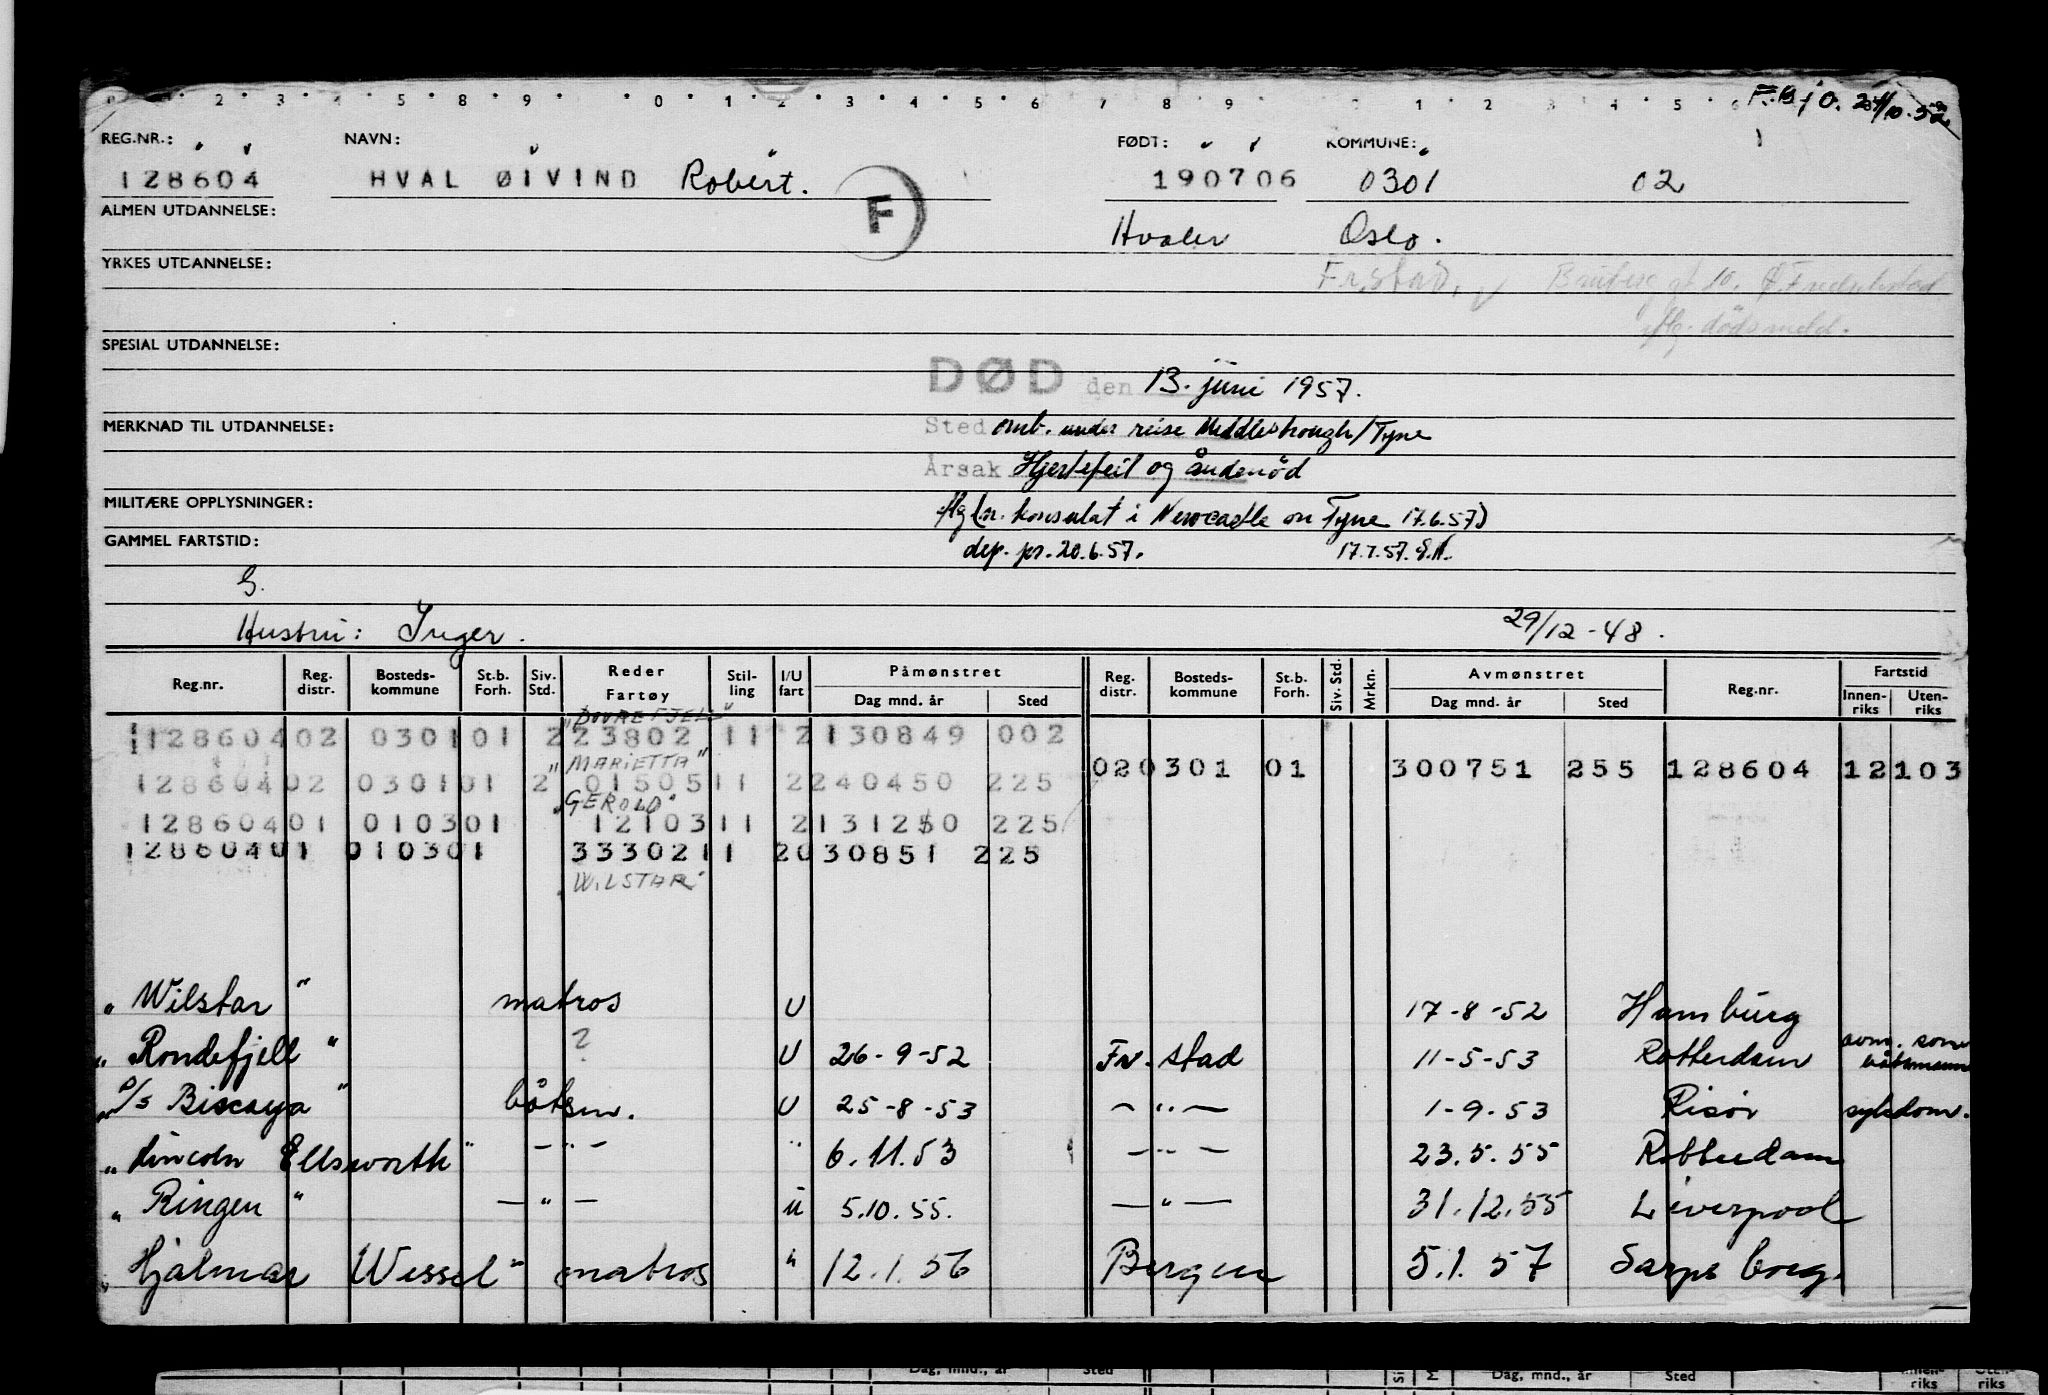 F.B.j O. 24/10.52
REG.NR.: NAVN: FØDT: KOMMUNE:
128604 HVAL ØIVIND Robert. 190706 0301 02
F
ALMEN UTDANNELSE: Hvaler Oslo.
YRKES UTDANNELSE: Fr.stad, gt 10. Fredrikstad
iflg. dødsmeld.
SPESIAL UTDANNELSE:
DØD den 13. juni 1957.
MERKNAD TIL UTDANNELSE: Sted omb. under reise Middlesbrough/Tyne
Årsak Hjertefeil og åndenød
MILITÆRE OPPLYSNINGER: iflg (n. konsulat i Newcastle on Tyne 17.6.57)
GAMMEL FARTSTID: dep. pr. 20.6.57. 17.7.57.
G.
Hustru: Inger. 29/12-48.
Reg.nr. Reg. distr. Bosteds- kommune St.b. Forh. Siv. Std. Reder Fartøy Stil- ling I/U fart Påmønstret Dag mnd. år Sted Reg. distr. Bosteds- kommune St.b. Forh. Siv. Std. Mrkn. Avmønstret Dag mnd. år Sted Reg.nr. Fartstid Innen- riks Uten- riks
"DOVREFJELL"
128604 02 0301 01 2 23802 11 2 130849 002
"MARIETTA"
020301 01 300751 255 128604 12103
128604 02 0301 01 2 01505 11 2 240450 225
"GEROLD"
128604 01 0103 01 12103 11 2 131250 225
128604 01 0103 01 33302 11 2 030851 225
"WILSTAR"
"Wilstar" matros U 17-8-52 Hamburg
"Rondefjell" ? U 26-9-52 Fr.stad 11-5-53 Rotterdam avm. som båtsmann
"D/s Biscaya" båtsm. U 25-8-53 — " — 1-9-53 Risør sykdom.
"Lincoln Ellsworth" — " — " 6.11.53 — " — 23.5.55 Rotterdam
"Ringen" — " — u 5.10.55. — " — 31.12.55 Liverpool
"Hjalmar Wessel" matros " 12.1.56 Bergen 5.1.57 Sarpsborg.
Dag, mnd., år Sted Dag, mnd., år Sted riks riks